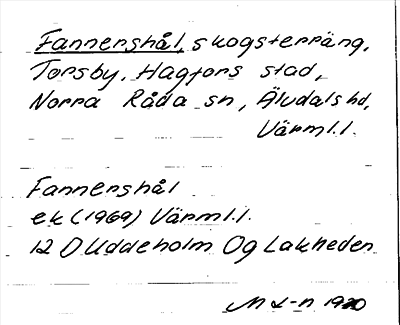 Fannershål, skogsterräng,
Torsby, Hagfors stad,
Norra Råda sn, Älvdals hd,
Värml.l.
Fannershål
ek (1969) Värml.l.
12 D Uddeholm Og Lakheden